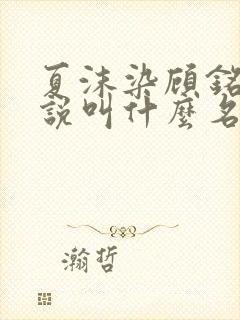 夏沫染顾銘
說叫什麼名
瀚哲